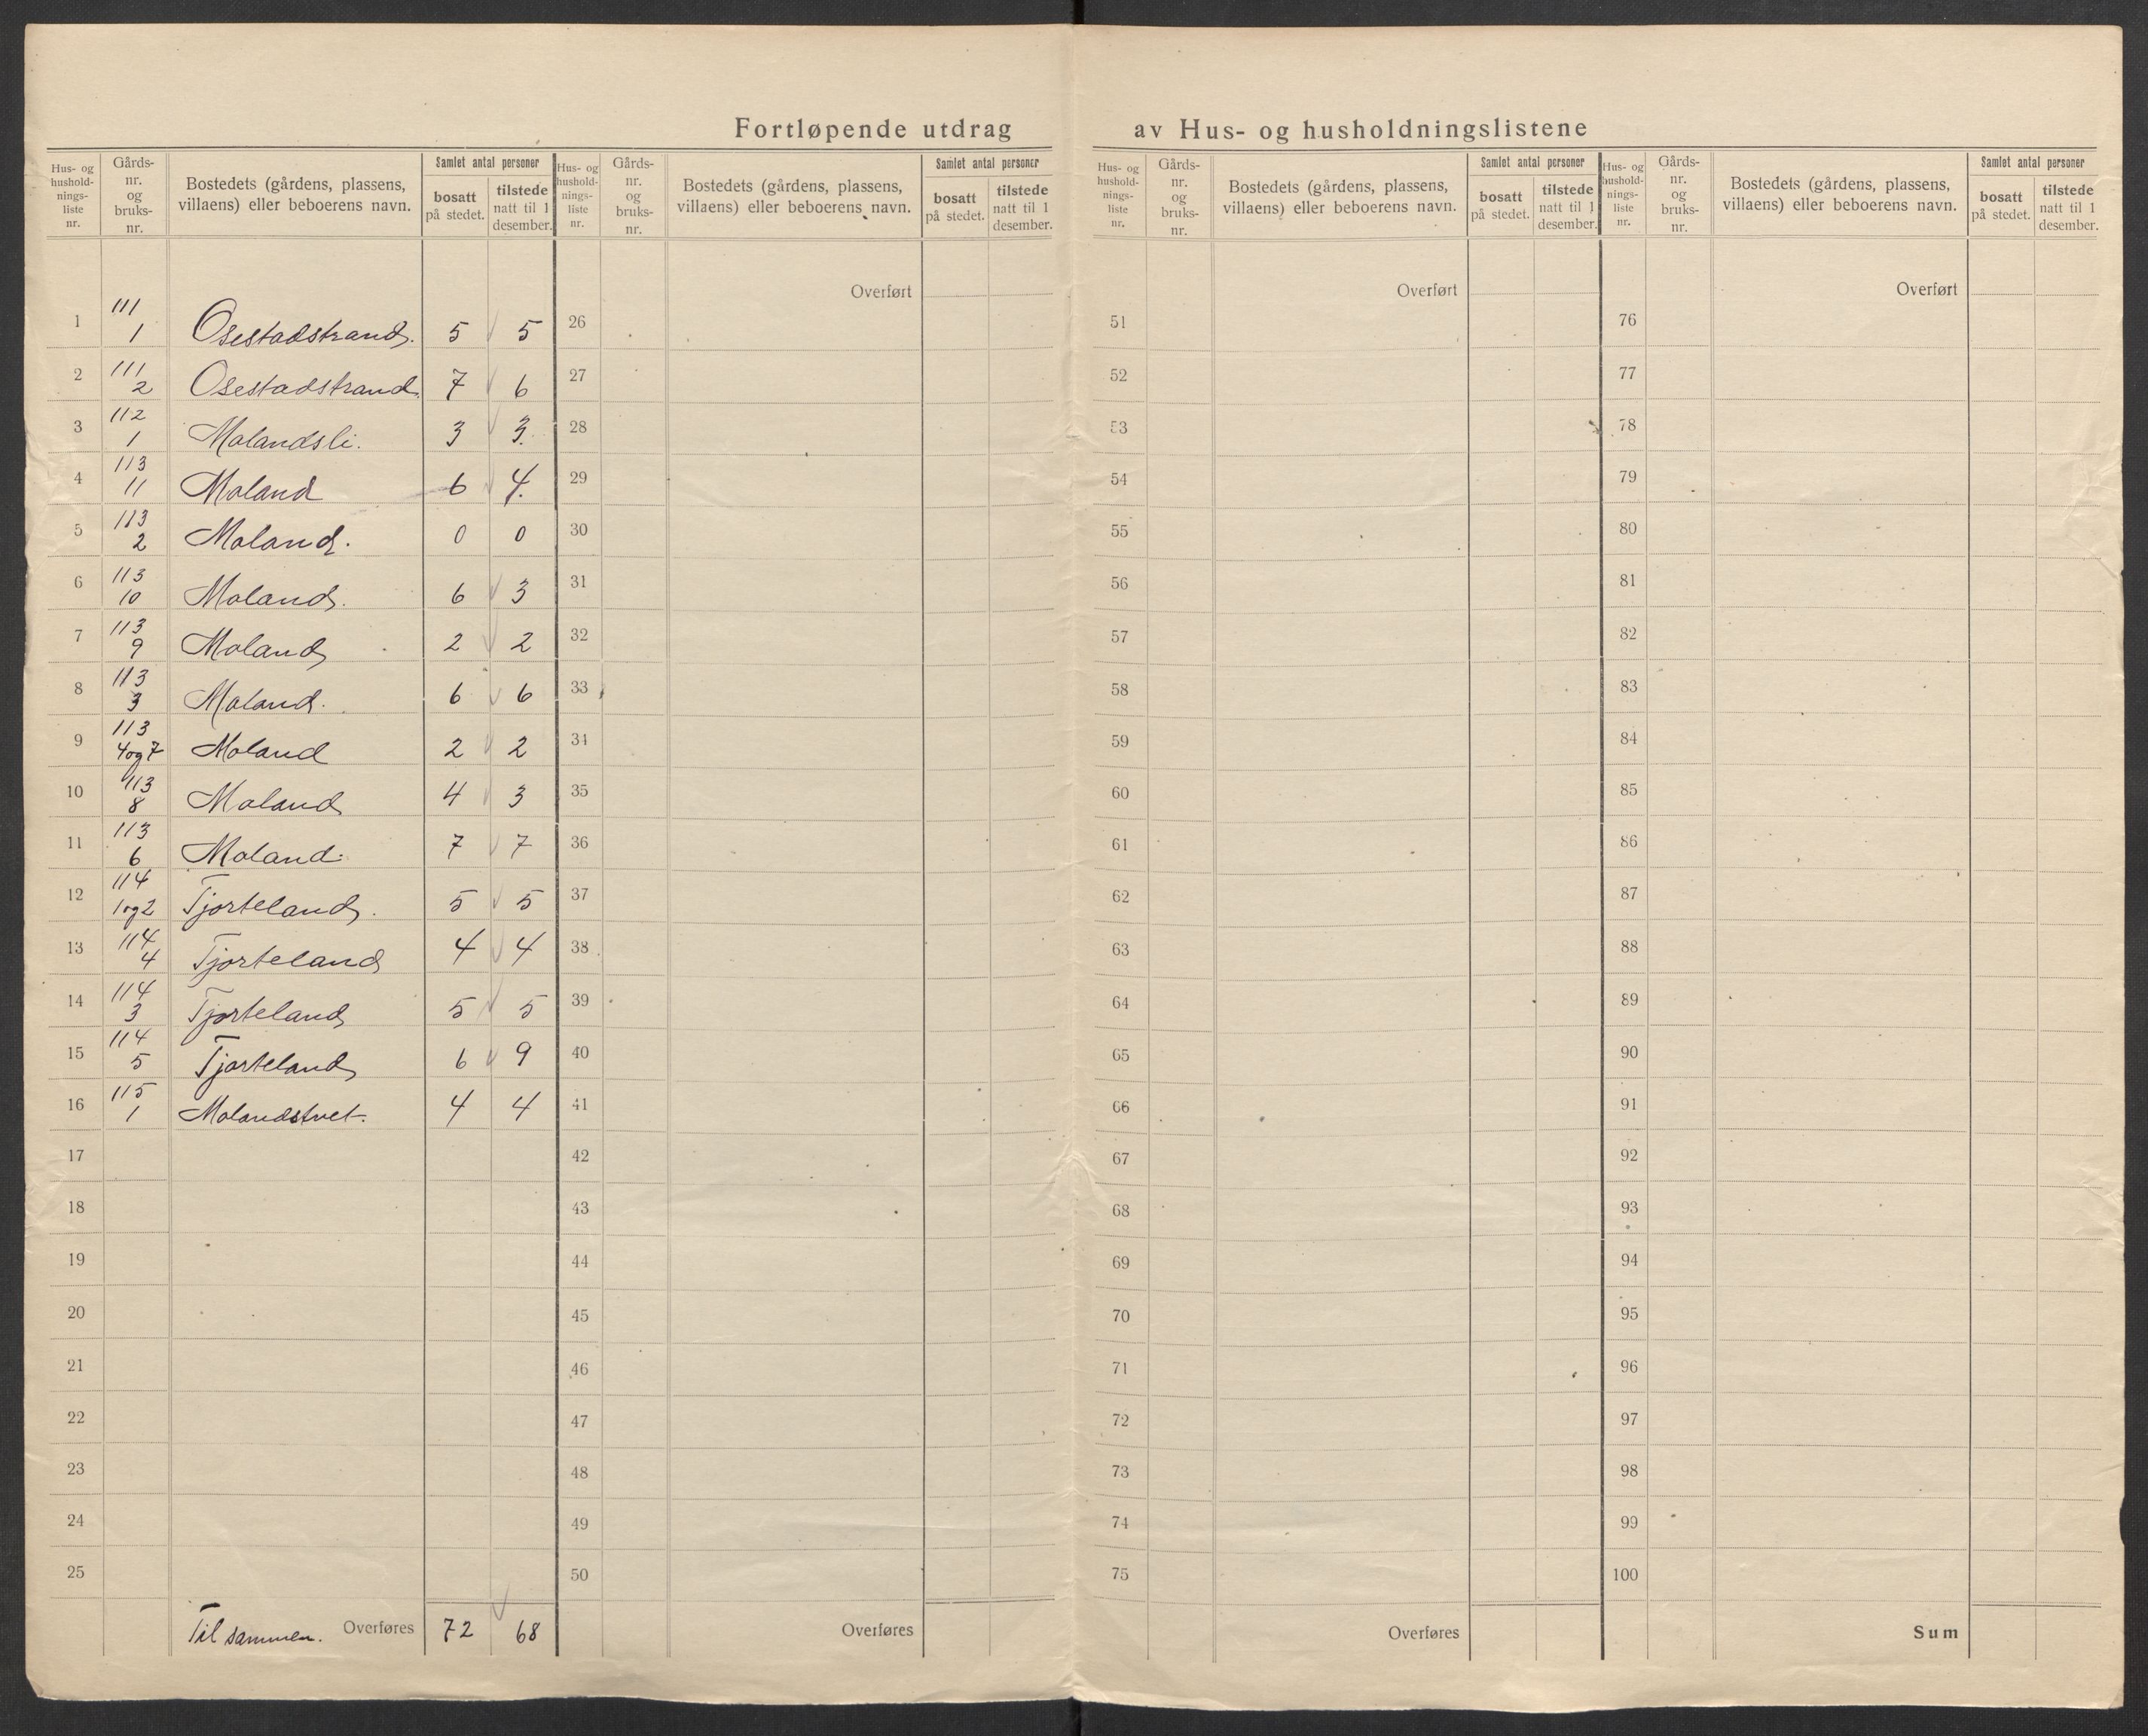 Fortløpende utdrag av Hus- og husholdningslistene
Hus- og
hushold-
nings-
liste
nr.
Gårds-
nr.
og
bruks-
nr.
Bostedets (gårdens, plassens,
villaens) eller beboerens navn.
Samlet antal personer
bosatt
på stedet.
tilstede
natt til 1
desember.
1 111 1 Osestadstrand. 5 5
2 111 2 Osestadstrand 7 6
3 112 1 Molandsli. 3 3.
4 113 11 Moland 6 4.
5 113 2 Moland. 0 0
6 113 10 Moland. 6 3
7 113 9 Moland 2 2
8 113 3 Moland. 6 6
9 113 4 og 7 Moland 2 2
10 113 8 Moland 4 3
11 113 6 Moland. 7 7
12 114 1 og 2 Tjorteland. 5 5
13 114 4 Tjorteland 4 4
14 114 3 Tjorteland 5 5
15 114 5 Tjorteland 6 9
16 115 1 Molandstvet. 4 4
17
18
19
20
21
22
23
24
25
Til sammen. Overføres 72 68
Hus- og
hushold-
nings-
liste
nr.
Gårds-
nr.
og
bruks-
nr.
Bostedets (gårdens, plassens,
villaens) eller beboerens navn.
Samlet antal personer
bosatt
på stedet.
tilstede
natt til 1
desember.
Overført
26
27
28
29
30
31
32
33
34
35
36
37
38
39
40
41
42
43
44
45
46
47
48
49
50
Overføres
Hus- og
hushold-
nings-
liste
nr.
Gårds-
nr.
og
bruks-
nr.
Bostedets (gårdens, plassens,
villaens) eller beboerens navn.
Samlet antal personer
bosatt
på stedet.
tilstede
natt til 1
desember.
Overført
51
52
53
54
55
56
57
58
59
60
61
62
63
64
65
66
67
68
69
70
71
72
73
74
75
Overføres
Hus- og
hushold-
nings-
liste
nr.
Gårds-
nr.
og
bruks-
nr.
Bostedets (gårdens, plassens,
villaens) eller beboerens navn.
Samlet antal personer
bosatt
på stedet.
tilstede
natt til 1
desember.
Overført
76
77
78
79
80
81
82
83
84
85
86
87
88
89
90
91
92
93
94
95
96
97
98
99
100
Sum